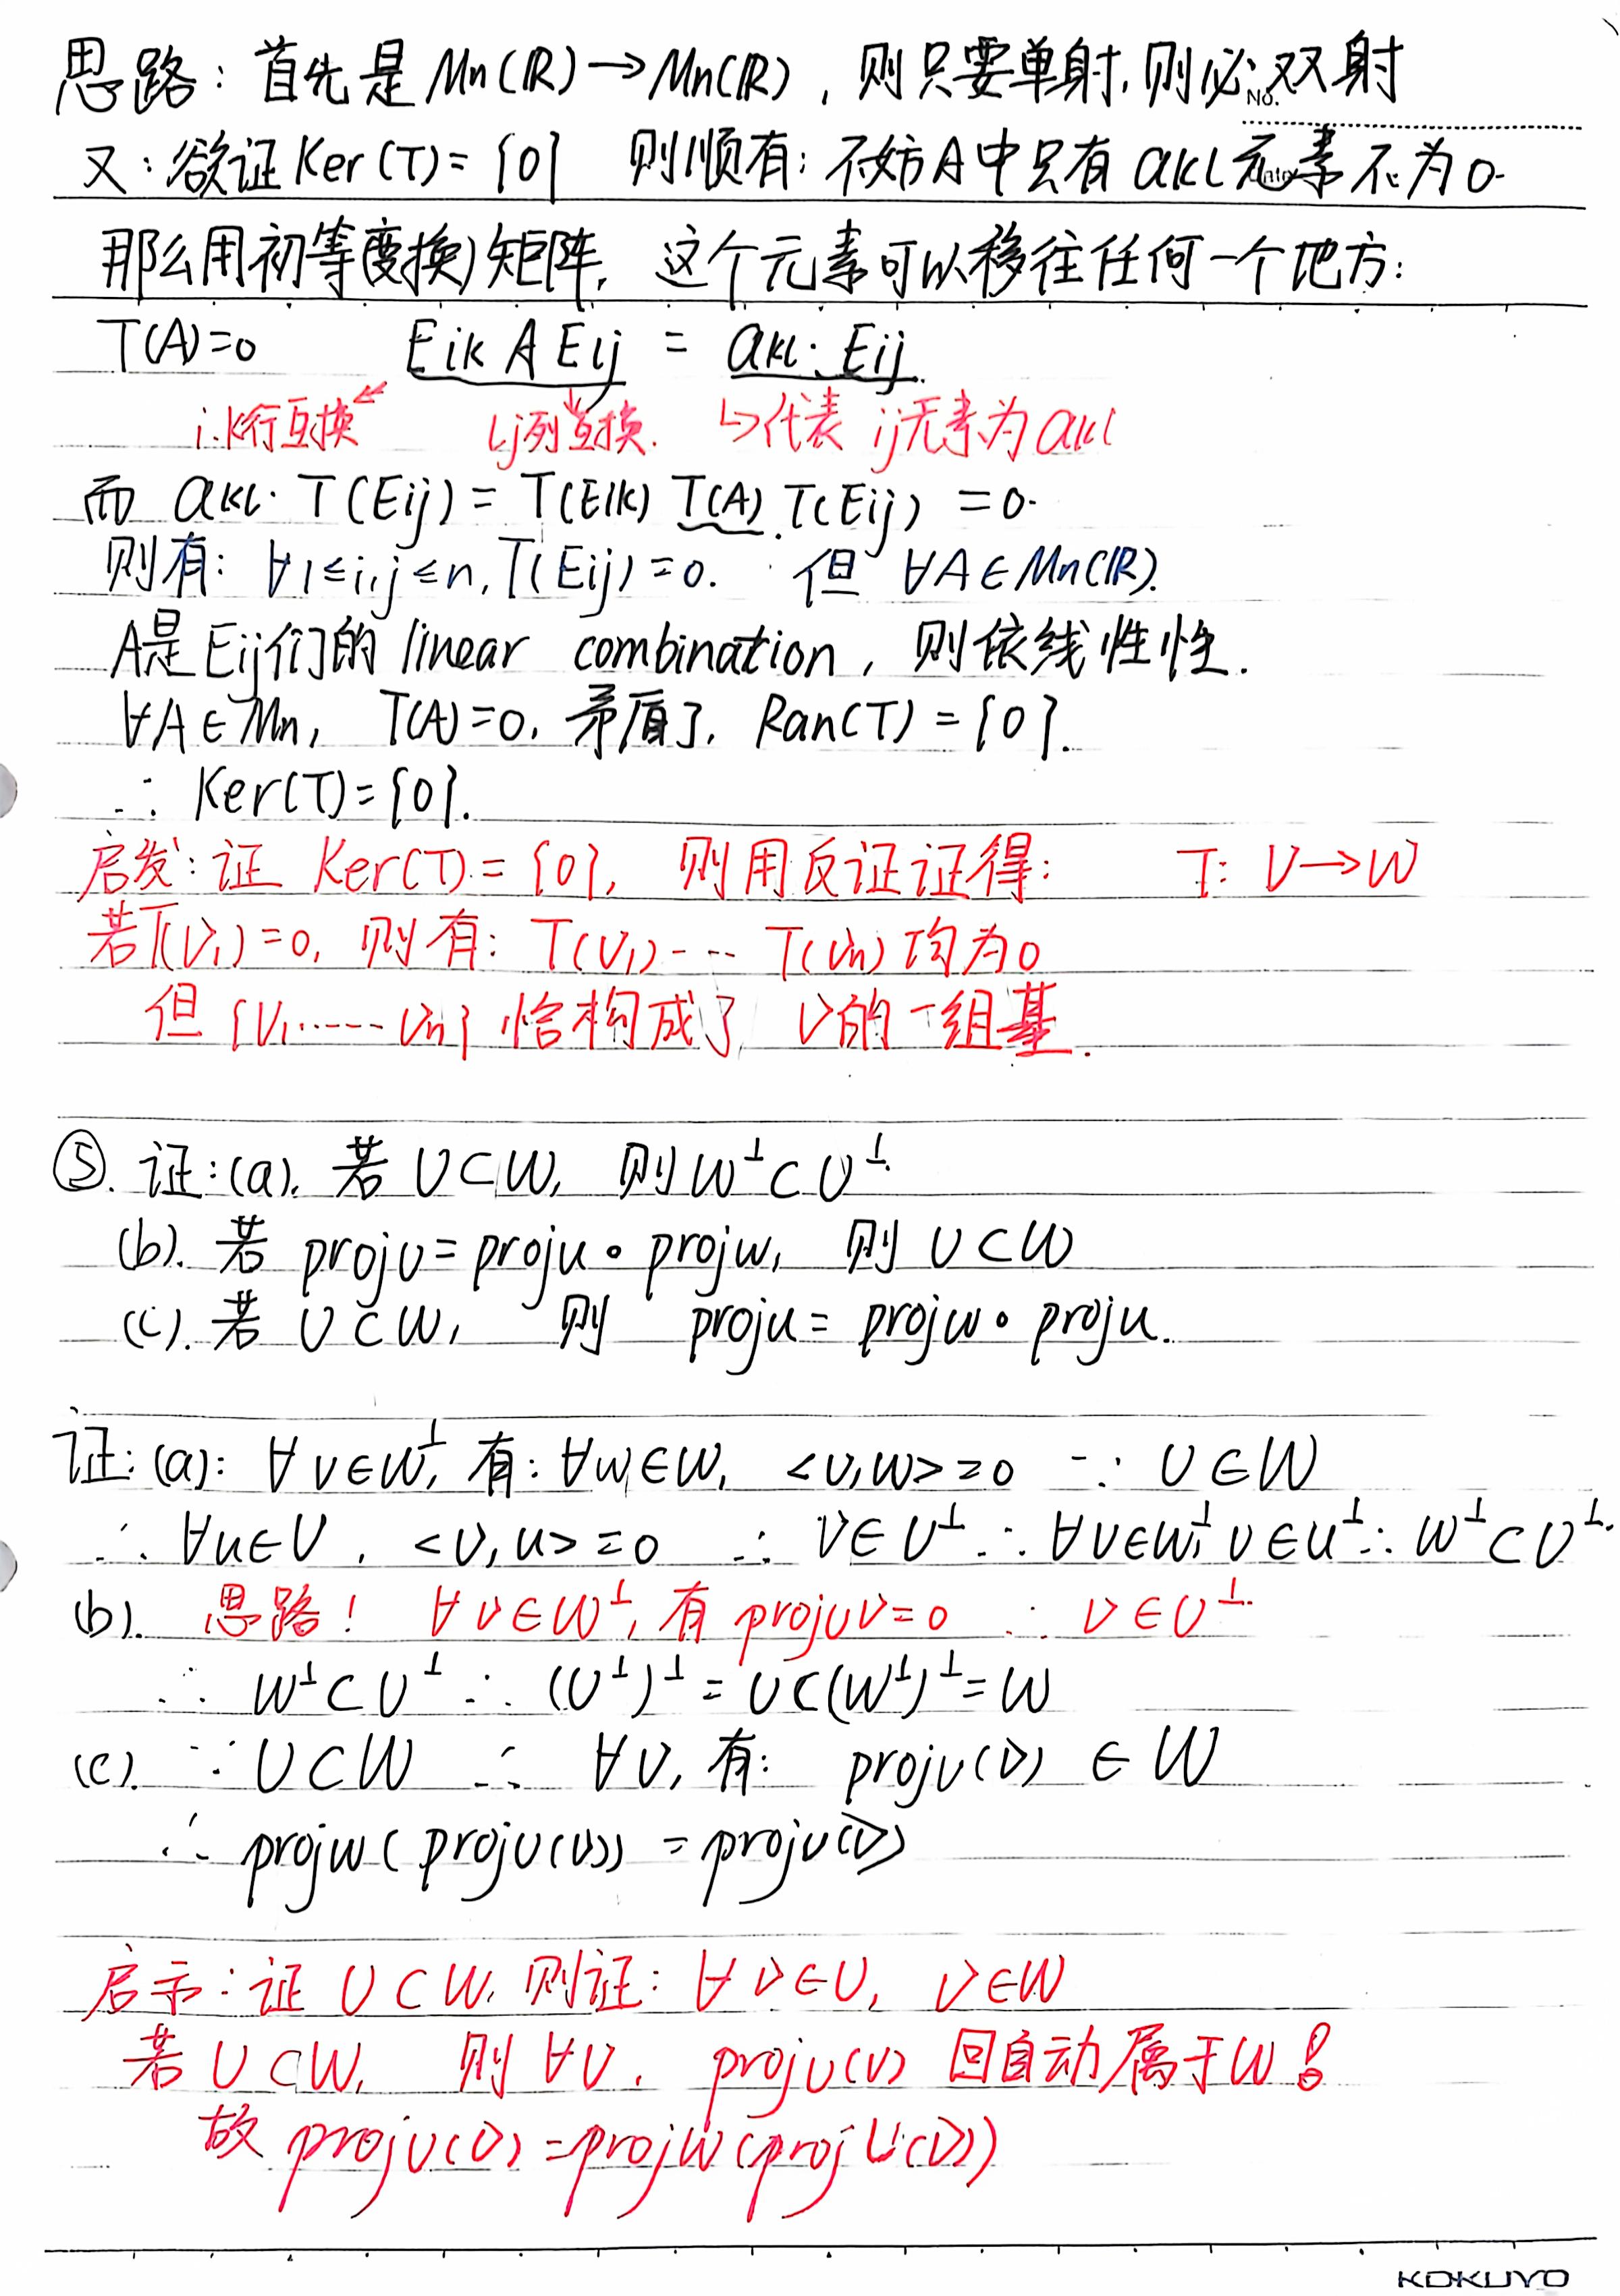 思路：首先是 Mn(R)→Mn(R)，则只要单射,则必双射
No.
又：欲证 Ker(T)={0} 则顺有：不妨A中只有 akl 元素不为0.
那么用初等(变换)矩阵，这个元素可以移往任何一个地方：
T(A)=0 Eik A Elj = akl·Eij
i.k行互换 lj列互换. ↳代表 ij元素为 akl
而 akl·T(Eij)=T(EIk) T(A).T(Eij)=0.
则有：∀1≤i,j≤n,T(Eij)=0. 但 ∀A∈Mn(R).
A是Eij们的 linear combination，则依线性性.
∀A∈Mn, T(A)=0, 矛盾了, Ran(T)={0}.
∴ Ker(T)={0}.
启发：证 Ker(T)={0}, 则用反证证得： T: V→W
若T(V1)=0, 则有：T(V1)--- T(Vn) 均为0
但 {V1……Vn} 恰构成了 V的一组基.
⑤. 证：(a). 若 U⊂W, 则 W⊥⊂U⊥
(b). 若 projU=proju∘projw, 则 U⊂W
(c). 若 U⊂W, 则 proju=projw∘proju.
证：(a)：∀v∈W⊥, 有：∀w∈W, <v,w>=0 ∵ U∈W
∴ ∀u∈U, <v,u>=0 ∴ V∈U⊥ ∴ ∀v∈W⊥, v∈U⊥ ∴ W⊥⊂U⊥.
(b). 思路！ ∀v∈W⊥, 有 projUV=0 ∴ V∈U⊥
∴ W⊥⊂U⊥ ∴ (U⊥)⊥=U⊂(W⊥)⊥=W
(c). ∵ U⊂W ∴ ∀v, 有： projU(V)∈W
∴ projw(projU(V))=projU(V)
启示：证 U⊂W, 则证：∀V∈U, V∈W
若 U⊂W, 则 ∀V, projU(V) 回自动属于W！
故 projU(V)=projW(projU(V))
KOKUYO